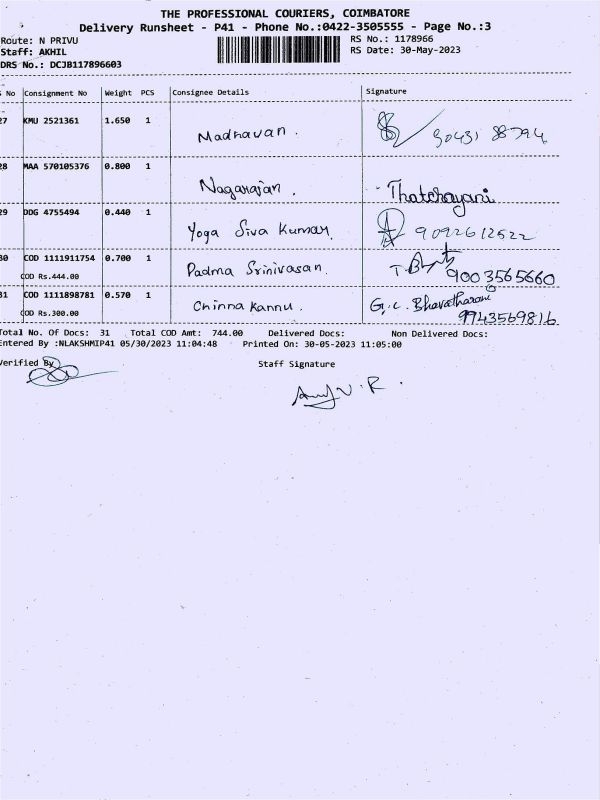 THE PROFESSIONAL COURIERS, COIMBATORE
Delivery Runsheet - P41 - Phone No.:0422-3505555 - Page No.:3
Route: N PRIVU
RS No.: 1178966
Staff: AKHIL
RS Date: 30-May-2023
DRS No.: DCJB117896603
No Consignment No Weight PCS Consignee Details Signature
27 KMU 2521361 1.650 1 Madhavan.
28 MAA 570105376 0.800 1 Nagarajan. Thatchayani
29 DDG 4755494 0.440 1 Yoga Siva Kumar. 9092612522
30 COD 1111911754 0.700 1 Padma Srinivasan.
COD Rs.444.00 9003565660
31 COD 1111898781 0.570 1 Chinna Kannu. G.C. Bhavatharani
COD Rs.300.00 9943569816
Total No. Of Docs: 31 Total COD Amt: 744.00 Delivered Docs: Non Delivered Docs:
Entered By :NLAKSHMIP41 05/30/2023 11:04:48 Printed On: 30-05-2023 11:05:00
Verified By Staff Signature